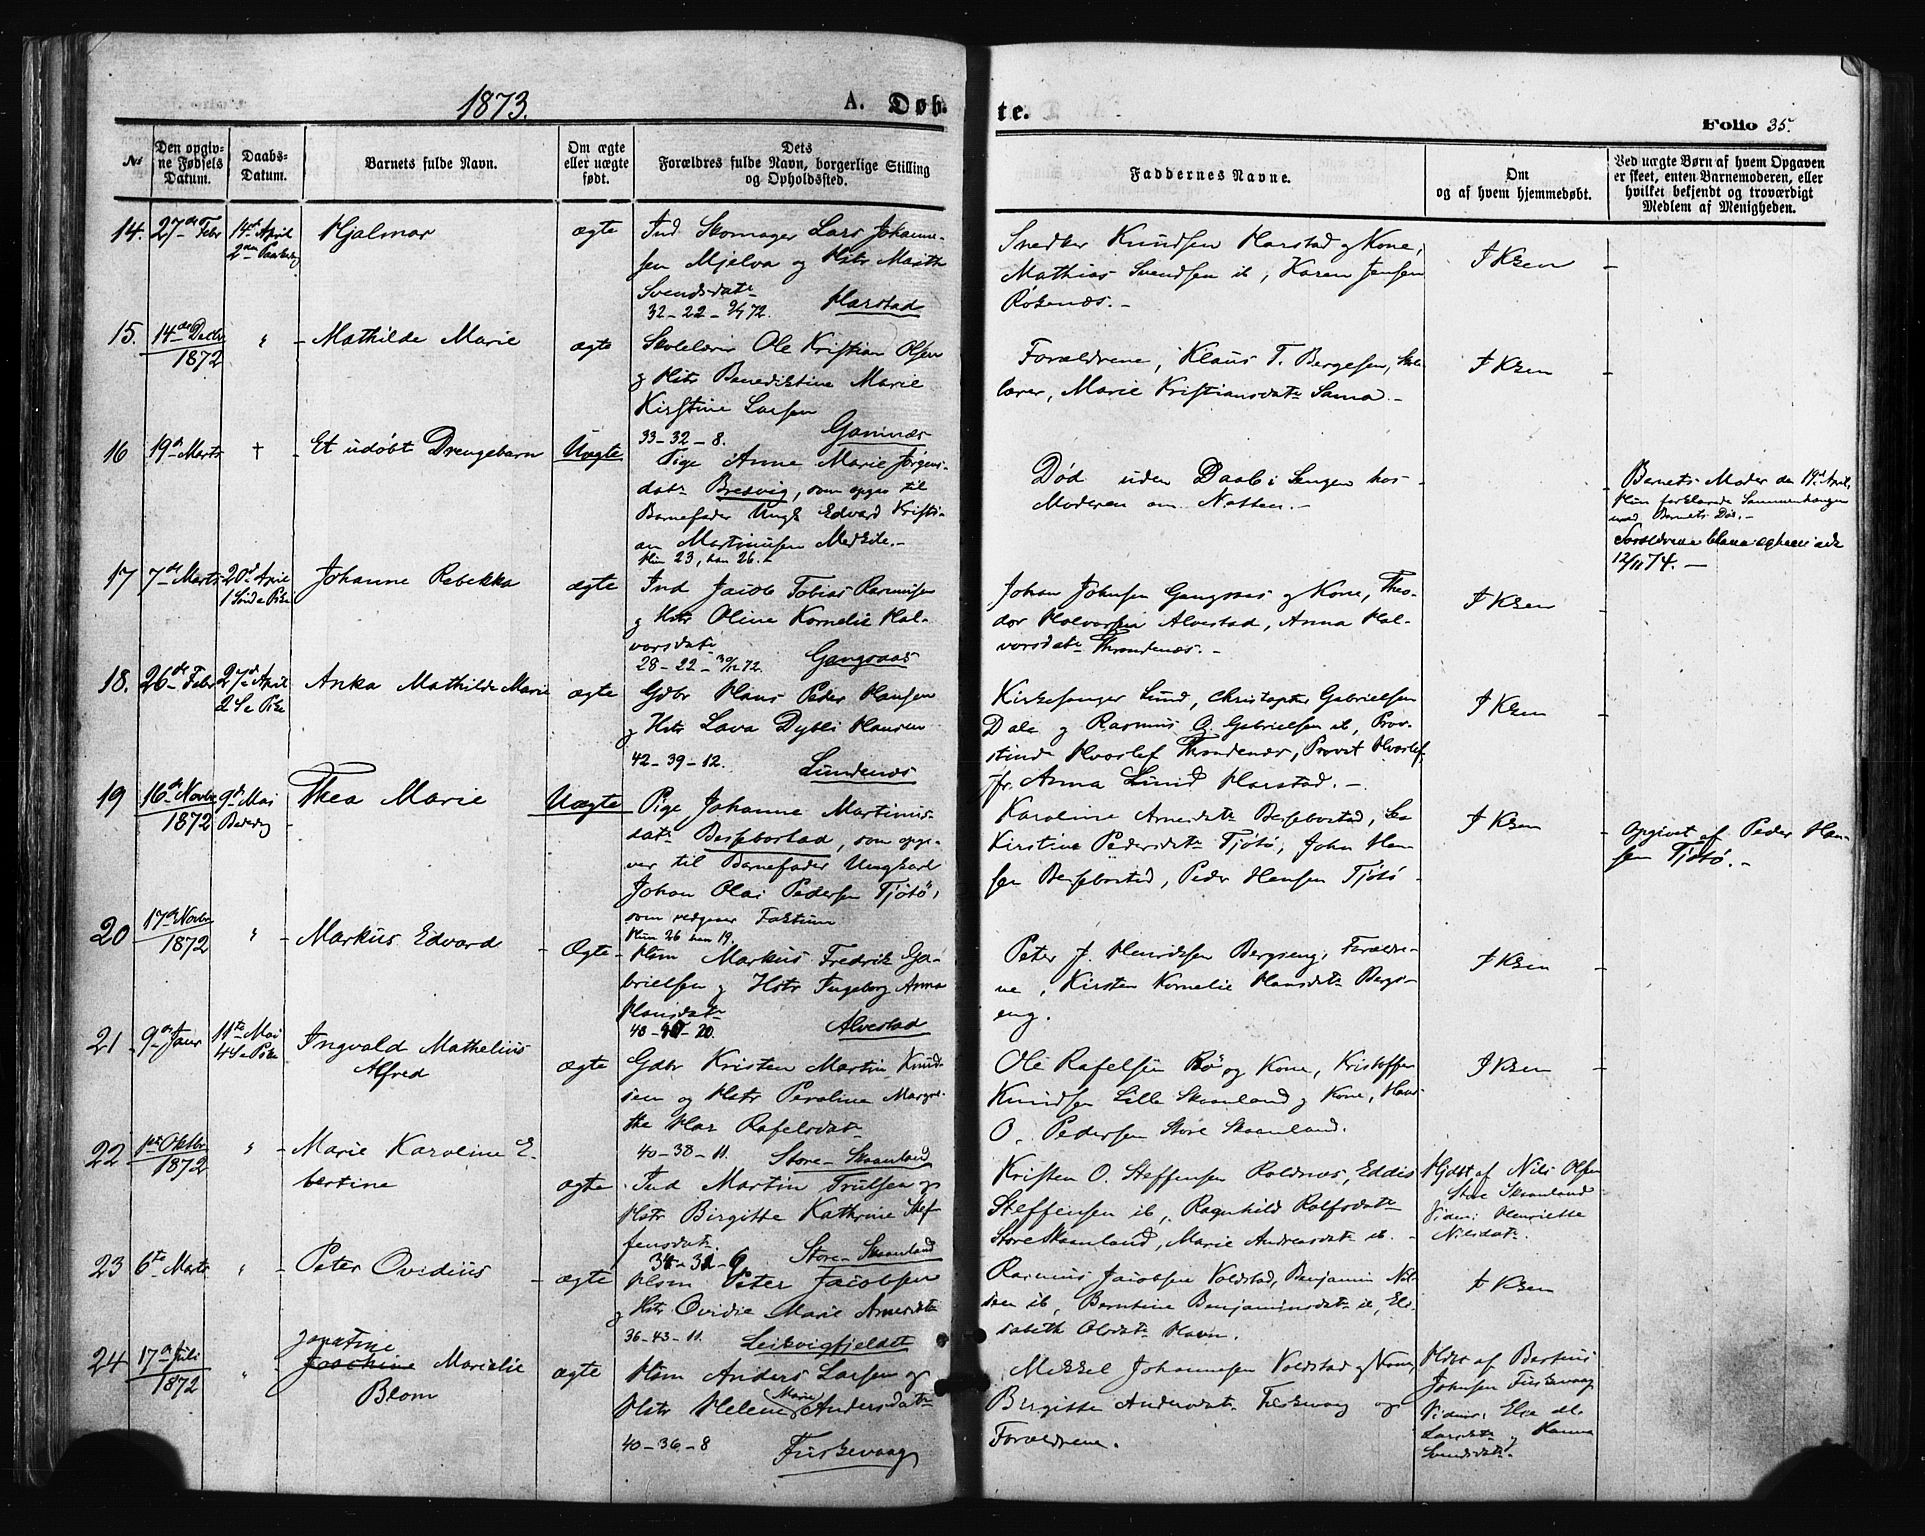 1873.
A. Døb-
te.
Folio 35.
No
Den opgiv-
ne Fødsels
Datum.
Daabs-
Datum.
Barnets fulde Navn.
Om ægte
eller uægte
født.
Dets
Forældres fulde Navn, borgerlige Stilling
og Opholdssted.
Faddernes Navne.
Om
og af hvem hjemmedøbt.
Ved uægte Børn af hvem Opgaven
er skeet, enten Barnemoderen, eller
hvilket bekjendt og troværdigt
Medlem af Menigheden.
14. 27de Febr
14de April
2den Paaskedag
Hjalmar
ægte
Ind Skomager Lars Johanne-
sen Mjelva og Hstr Marth
Svendsdatr
32-22- 72. Harstad
Snedker Knudsen Harstad og Kone,
Mathias Svendsen ib, Karen Jensen
Røkenæs. -
I Ksen
15. 14de Decbr
1872
"
Mathilde Marie
ægte
Skolelærer Ole Kristian Olsen
og Hstr Benediktine Marie
Kirstine Larsen
33-32-8. Gamnæs
Forældrene, Klaus T. Bergesen, Sko-
lærer, Marie Kristiansdatr Sama. -
I Ksen
16 19de Marts
†
Et udøbt Drengebarn
Uægte
Pige Anne Marie Jørgens-
datr Bresvig, som opgiv til
Barnefader Ungk Edvard Kristi-
an Martinusen Medkile. -
Hun 23, han 26.
Død uden Daab i Sengen hos
Moderen om Natten. -
Barnets Moder den 19de April,
Hun forklarede Sammenhængen
med Barnets Død. -
Forældrene bleve ægteviede
12/11 74. -
17 7de Marts
20de April
1 Sønd e Pske
Johanne Rebekka
ægte
Ind Jacob Tobias Rasmusen
og Hstr Oline Kornelie Hal-
vorsdatr
28-22-30/12 72. Gangsaas
Johan Johnsen Gangsaas og Kone, Theo-
dor Halvorsen Alvestad, Anna Hal-
vorsdatr Throndenæs. -
I Ksen
18. 26de Febr
27de April
2 S e Pske
Anka Mathilde Marie
ægte
Gdbr Hans Peder Hansen
og Hstr Lava Dybli Hansen
42-39-12. Lundenæs
Kirkesanger Lund, Christopher Gabrielsen
Dale og Rasmus O. Gabrielsen ib, Prov-
stinde Hvoslef Throndenæs, Provst Hvoslef
jfr Anna Lund Harstad. -
I Ksen
19 16de Novbr
1872
9de Mai
Bededag
Thea Marie
Uægte
Pige Johanne Martinus-
datr Bessebostad, som opgi-
ver til Barnefader Ungkarl
Johan Olai Pedersen Tjøtø,
som vedgaaer Faktum
Hun 26 han 19.
Karoline Arnesdatr Bessebostad,
Kirstine Pedersdatr Tjøtø, John Han-
sen Bessebostad, Peder Hansen Tjøtø -
I Ksen
Opgivet af Peder Han-
sen Tjøtø. -
20 17de Novbr
1872
"
Markus Edvard
Ægte
Hsm Markus Fredrik Ga-
brielsen og Hstr Ingeborg Anna
Hansdatr
40-40-20. Alvestad
Peter J. Henriksen Bergseng, Forældre-
ne, Kirsten Kornelie Hansdatr Bergs-
eng.
I Ksen
21 9de Janr
11te Mai
4 S e Pske
Ingvald Mathelius
Alfred
ægte
Gdbr Kristen Martin Knud-
sen og Hstr Peroline Margre-
the Mar Rafelsdatr
40-38-11. Store-Skaanland
Ole Rafelsen Bø og Kone, Kristoffer
Knudsen Lille Skaanland og Kone, Hans
O. Pedersen Store Skaanland.
I Ksen
22 1ste Oktbr
1872
"
Marie Karoline E-
bertine
ægte
Ind Martin Trulsen og
Hstr Birgitte Kathrine Stef-
fensdatr.
34-31-6 Store-Skaanland
Kristen O. Steffensen Roldnæs, Eddis
Steffensen ib, Ragnhild Rolfsdatr
Store Skaanland, Marie Andreasdatr ib. -
Hjdøbt af Nils Olsen
Store Skaanland
Viden: Henriette
Nilsdatr.
23 6te Marts
"
Peter Ovidius
ægte
Hsm Peter Jacobsen
og Hstr Ovidie Marie Arnesdatr
36-43-11. Leikvigfjeldet
Rasmus Jacobsen Voldstad, Benjamin Nil-
sen ib, Berntine Benjaminsdatr ib, Eli-
sabeth Olsdatr Havn.
I Ksen
24 17de Juli
1872
"
Josefine Marielie
Blom
ægte
Hsm Anders Larsen og
Hstr Helene Marie Andersdatr
40-36-8 Fuskevaag
Mikkel Johannesen Voldstad og Kone,
Birgitte Andersdatr Fuskevaag og
Forældrene.
Hdøbt af Bertinus
Johnsen Fuskevaag
Viden: Else
Larsdatr og Hanna
Svendsdatr.